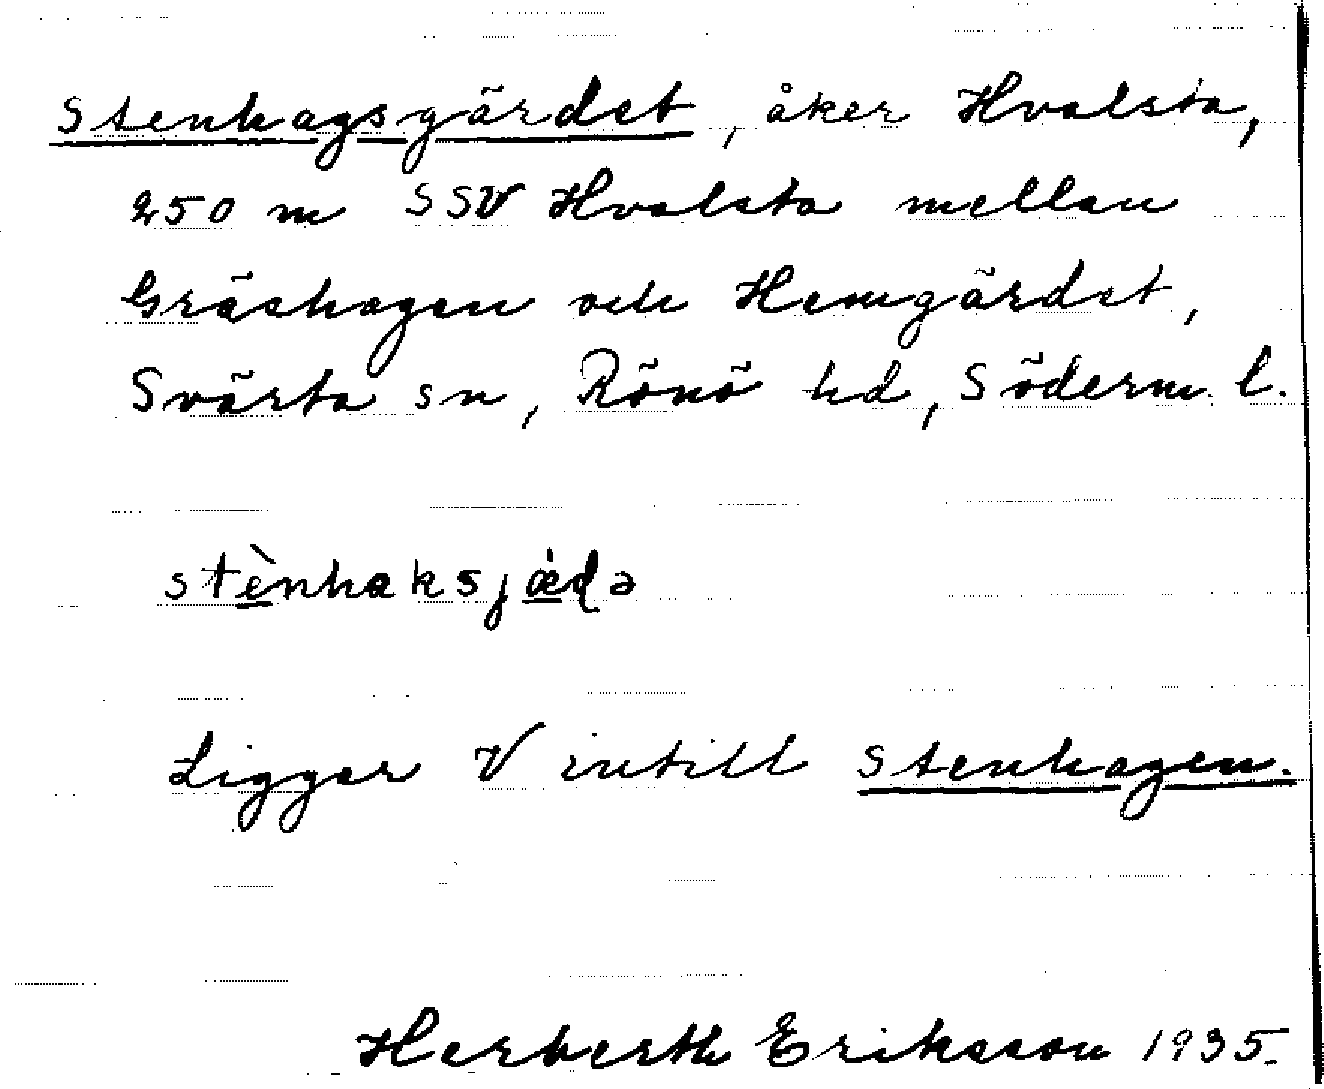 Stenhagsgärdet, åker Hvalsta,
250 m SSV Hvalsta mellan
Gräshagen och Hemgärdet,
Svärta sn, Rönö hd, Söderm. l.
stènhaksjæ̀ɖə
Ligger V intill Stenhagen.
Herberth Eriksson 1935.